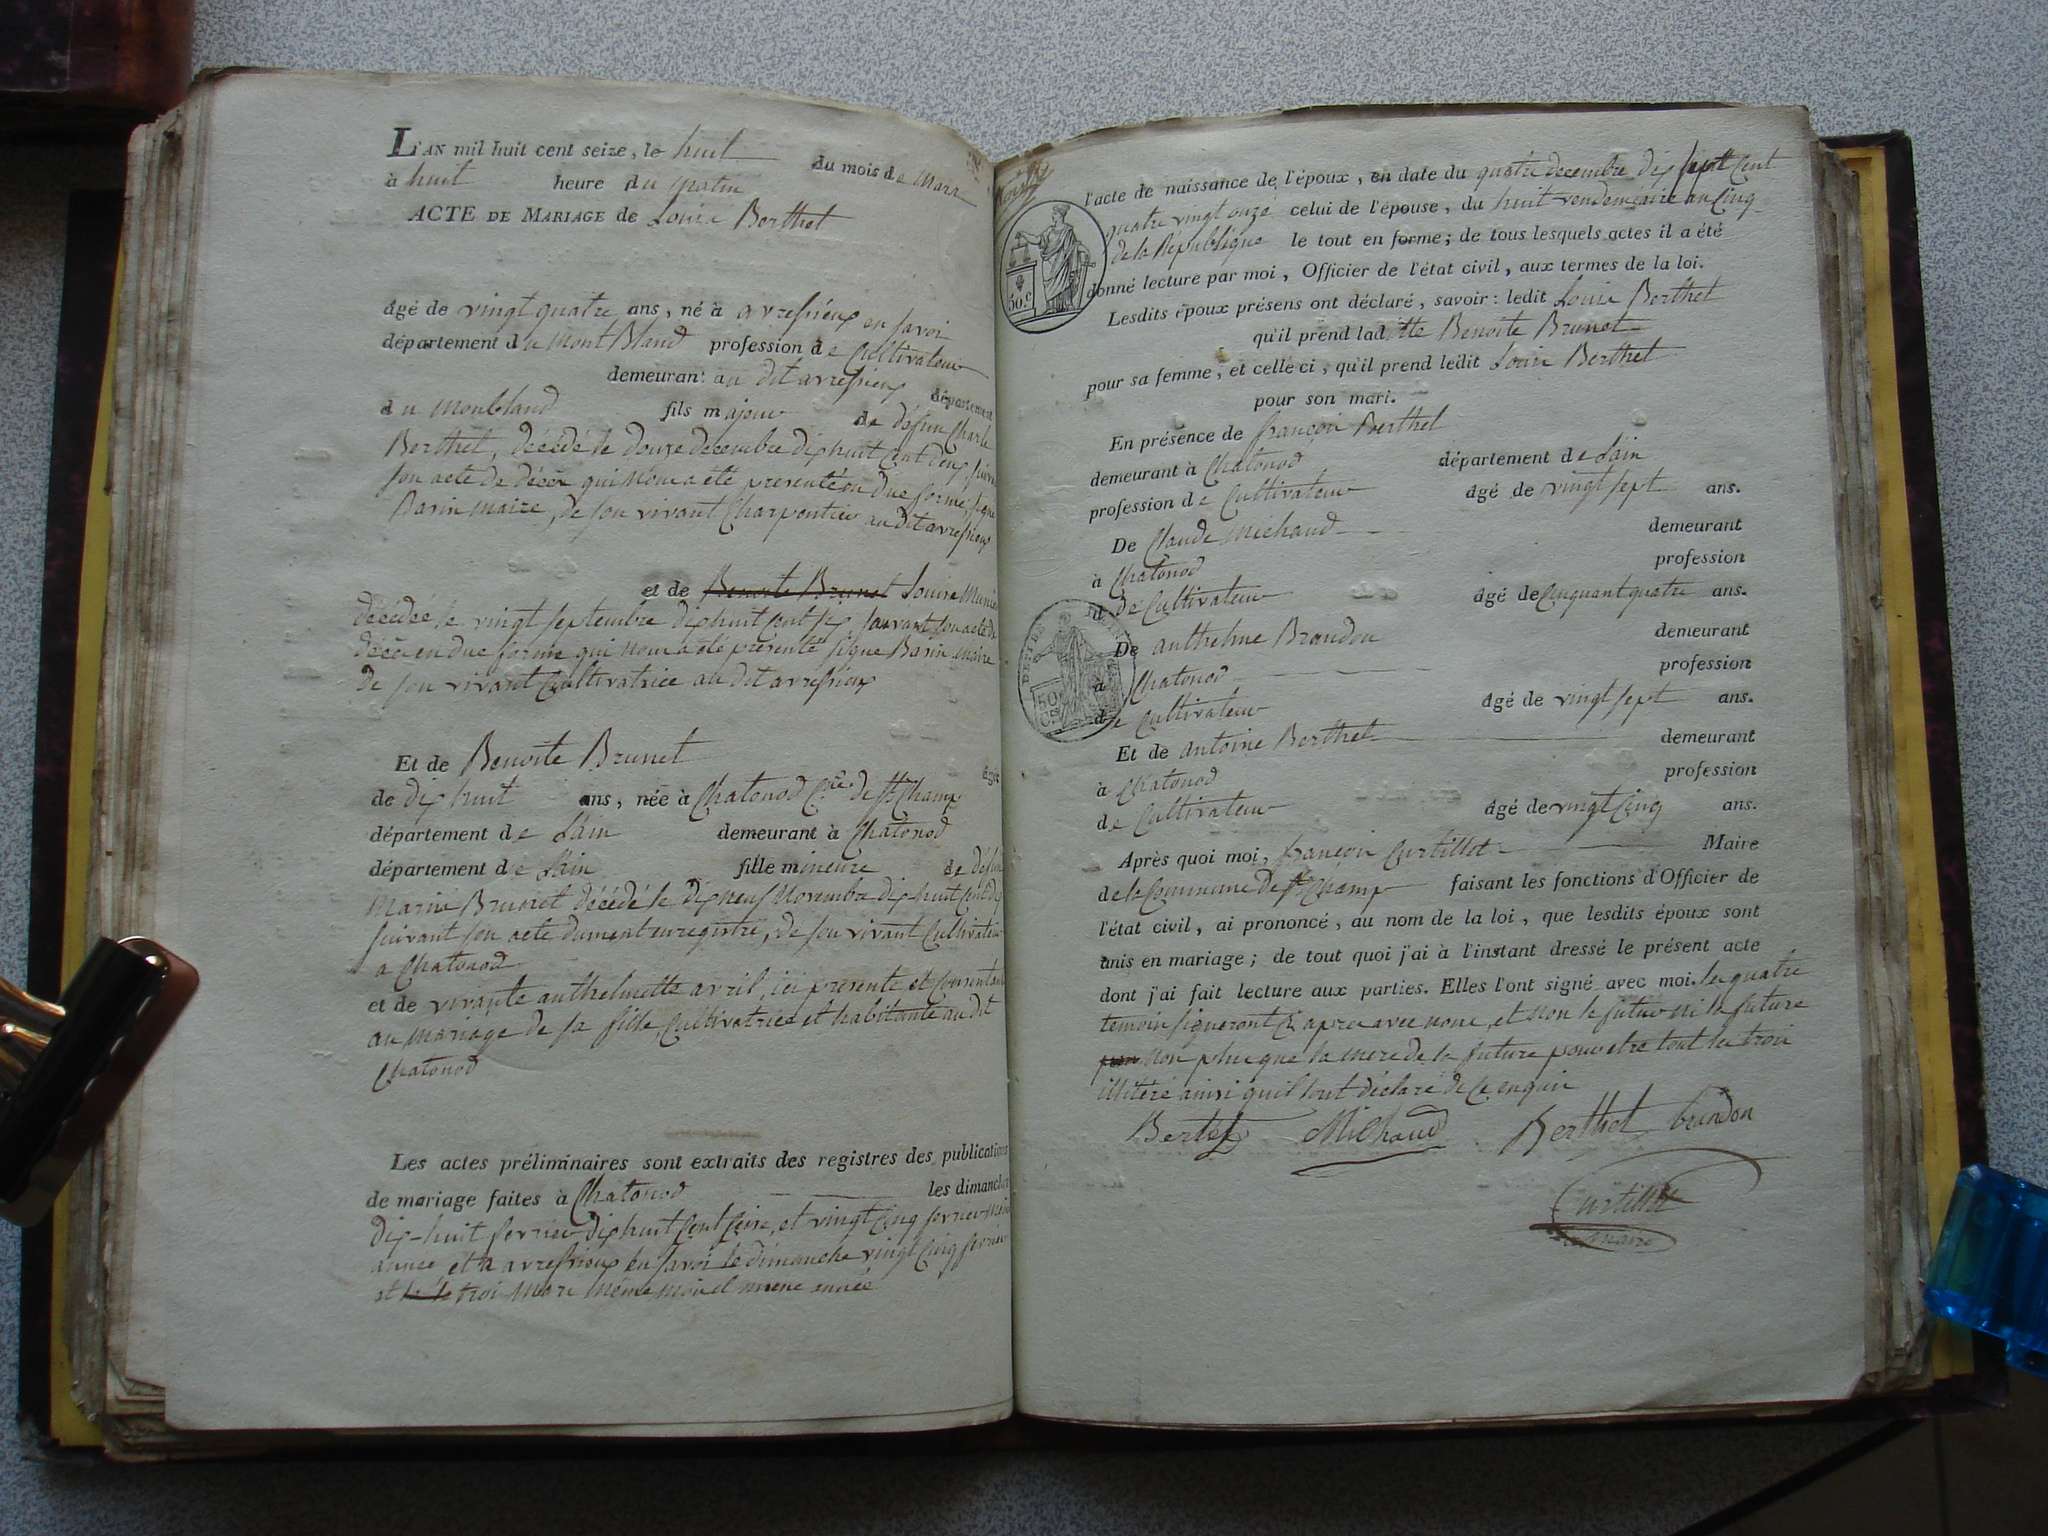 L'AN mil huit cent seize, le huit du mois de Mars
à huit heure du matin
ACTE DE MARIAGE de Louis Berthet
âgé de vingt quatre ans, né à avressieux en savoi
département du Mont Bland profession de Cultivateur
demeurant au dit avressieux département
du Montbland fils majeur de défun Charle
Berthet, décédé le douze decembre dix huit cent deux suivan
son acte de décès qui nous a été présenté en due forme, signé
Barin maire, de son vivant Charpentier au dit avressieux
et de Benoite Brunet Louise Munier
décédée le vingt septembre dix huit cent six suivant son acte de
décès en due forme qui nous a été présenté signé Barin maire
de son vivant Cultivatrice au dit avressieux
Et de Benoite Brunet âgée
de dix huit ans, née à Chatonod Cne de St Champ
département de Lain demeurant à Chatonod
département de Lain fille mineure de défun
Marin Brunet décédé le dix neuf Novembre dix huit cent dix
suivant son acte dument enregistré, de son vivant Cultivateur
a Chatonod
et de vivante anthelmette avril, ici presente et consentante
au mariage de sa fille, Cultivatrice et habitante au dit
Chatonod
Les actes préliminaires sont extraits des registres des publications
de mariage faites à Chatonod les dimanches
dix-huit fevrier dix huit cent seize, et vingt cinq fevrier même
annee et a avressieux en savoi le dimanche vingt cinq fevrier
et le troi Mars même moi et meme année
l'acte de naissance de l'époux, en date du quatre decembre dix sept cent
quatre vingt onze celui de l'épouse, du huit vendemiaire an Cinq
de la République le tout en forme; de tous lesquels actes il a été
donné lecture par moi, Officier de l'état civil, aux termes de la loi.
50.c
Lesdits époux présens ont déclaré, savoir: ledit Louis Berthet
qu'il prend laditte Benoite Brunet
pour sa femme, et celle ci, qu'il prend ledit Louis Berthet
pour son mari.
En présence de françois Berthet
demeurant à Chatonod département de Lain
profession de Cultivateur âgé de vingt sept ans.
De Claude Michaud demeurant
à Chatonod profession
de Cultivateur âgé de Cinquant quatre ans.
De anthelme Brondon demeurant
à Chatonod profession
50
Cs
de Cultivateur âgé de vingt sept ans.
Et de antoine Berthet demeurant
à Chatonod profession
de Cultivateur âgé de vingt cinq ans.
Après quoi moi, françois Curtillet Maire
de la Commune de St Champ faisant les fonctions d'Officier de
l'état civil, ai prononcé, au nom de la loi, que lesdits époux sont
unis en mariage; de tout quoi j'ai à l'instant dressé le présent acte
dont j'ai fait lecture aux parties. Elles l'ont signé avec moi. les quatre
temoin signeront Ci apres avec nous, et non le futur ni la future
non plus que la mere de la future pour etre tout les trois
illiteré ainsi quil lont déclaré de ce enquis
Bertet Michaud Berthet brondon
Curtillet
maire